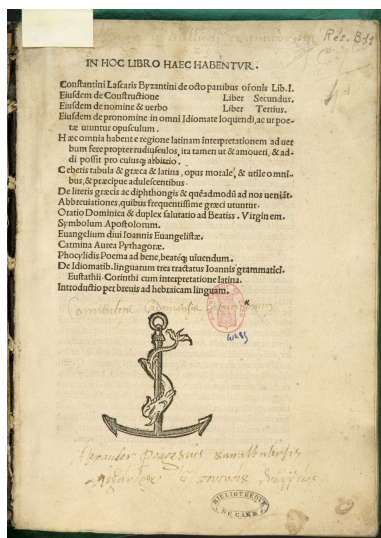 Rés. B 11
IN HOC LIBRO HAEC HABENTVR.
Constantini Lascaris Byzantini de octo partibus orōnis Lib. I.
Eiusdem de Constructione Liber Secundus.
Eiusdem de nomine & uerbo Liber Tertius.
Eiusdem de pronomine in omni Idiomate loquendi, ac ut poe-
tæ utuntur opusculum.
Hæc omnia habent e regione latinam interpretationem ad uer
bum fere propter rudiusculos, ita tamen ut & amoueri, & ad-
di possit pro cuiusq; arbitrio.
Cebetis tabula & græca & latina, opus morale, & utile omni-
bus, & præcipue adulescentibus.
De literis græcis ac diphthongis & quēadmodū ad nos ueniāt.
Abbreuationes, quibus frequentissime græci utuntur.
Oratio Dominica & duplex salutatio ad Beatiss. Virginem.
Symbolum Apostolorum.
Euangelium diui Ioannis Euangelistæ.
Carmina Aurea Pythagoræ.
Phocylidis Poema ad bene, beateq; uiuendum.
De Idiomatib. linguarum tres tractatus Ioannis grammatici.
Eustathii. Corinthi cum interpretatione latina.
Introductio per breuis ad hebraicam linguam.
BIBLIOTHÈQUE
DE CAEN